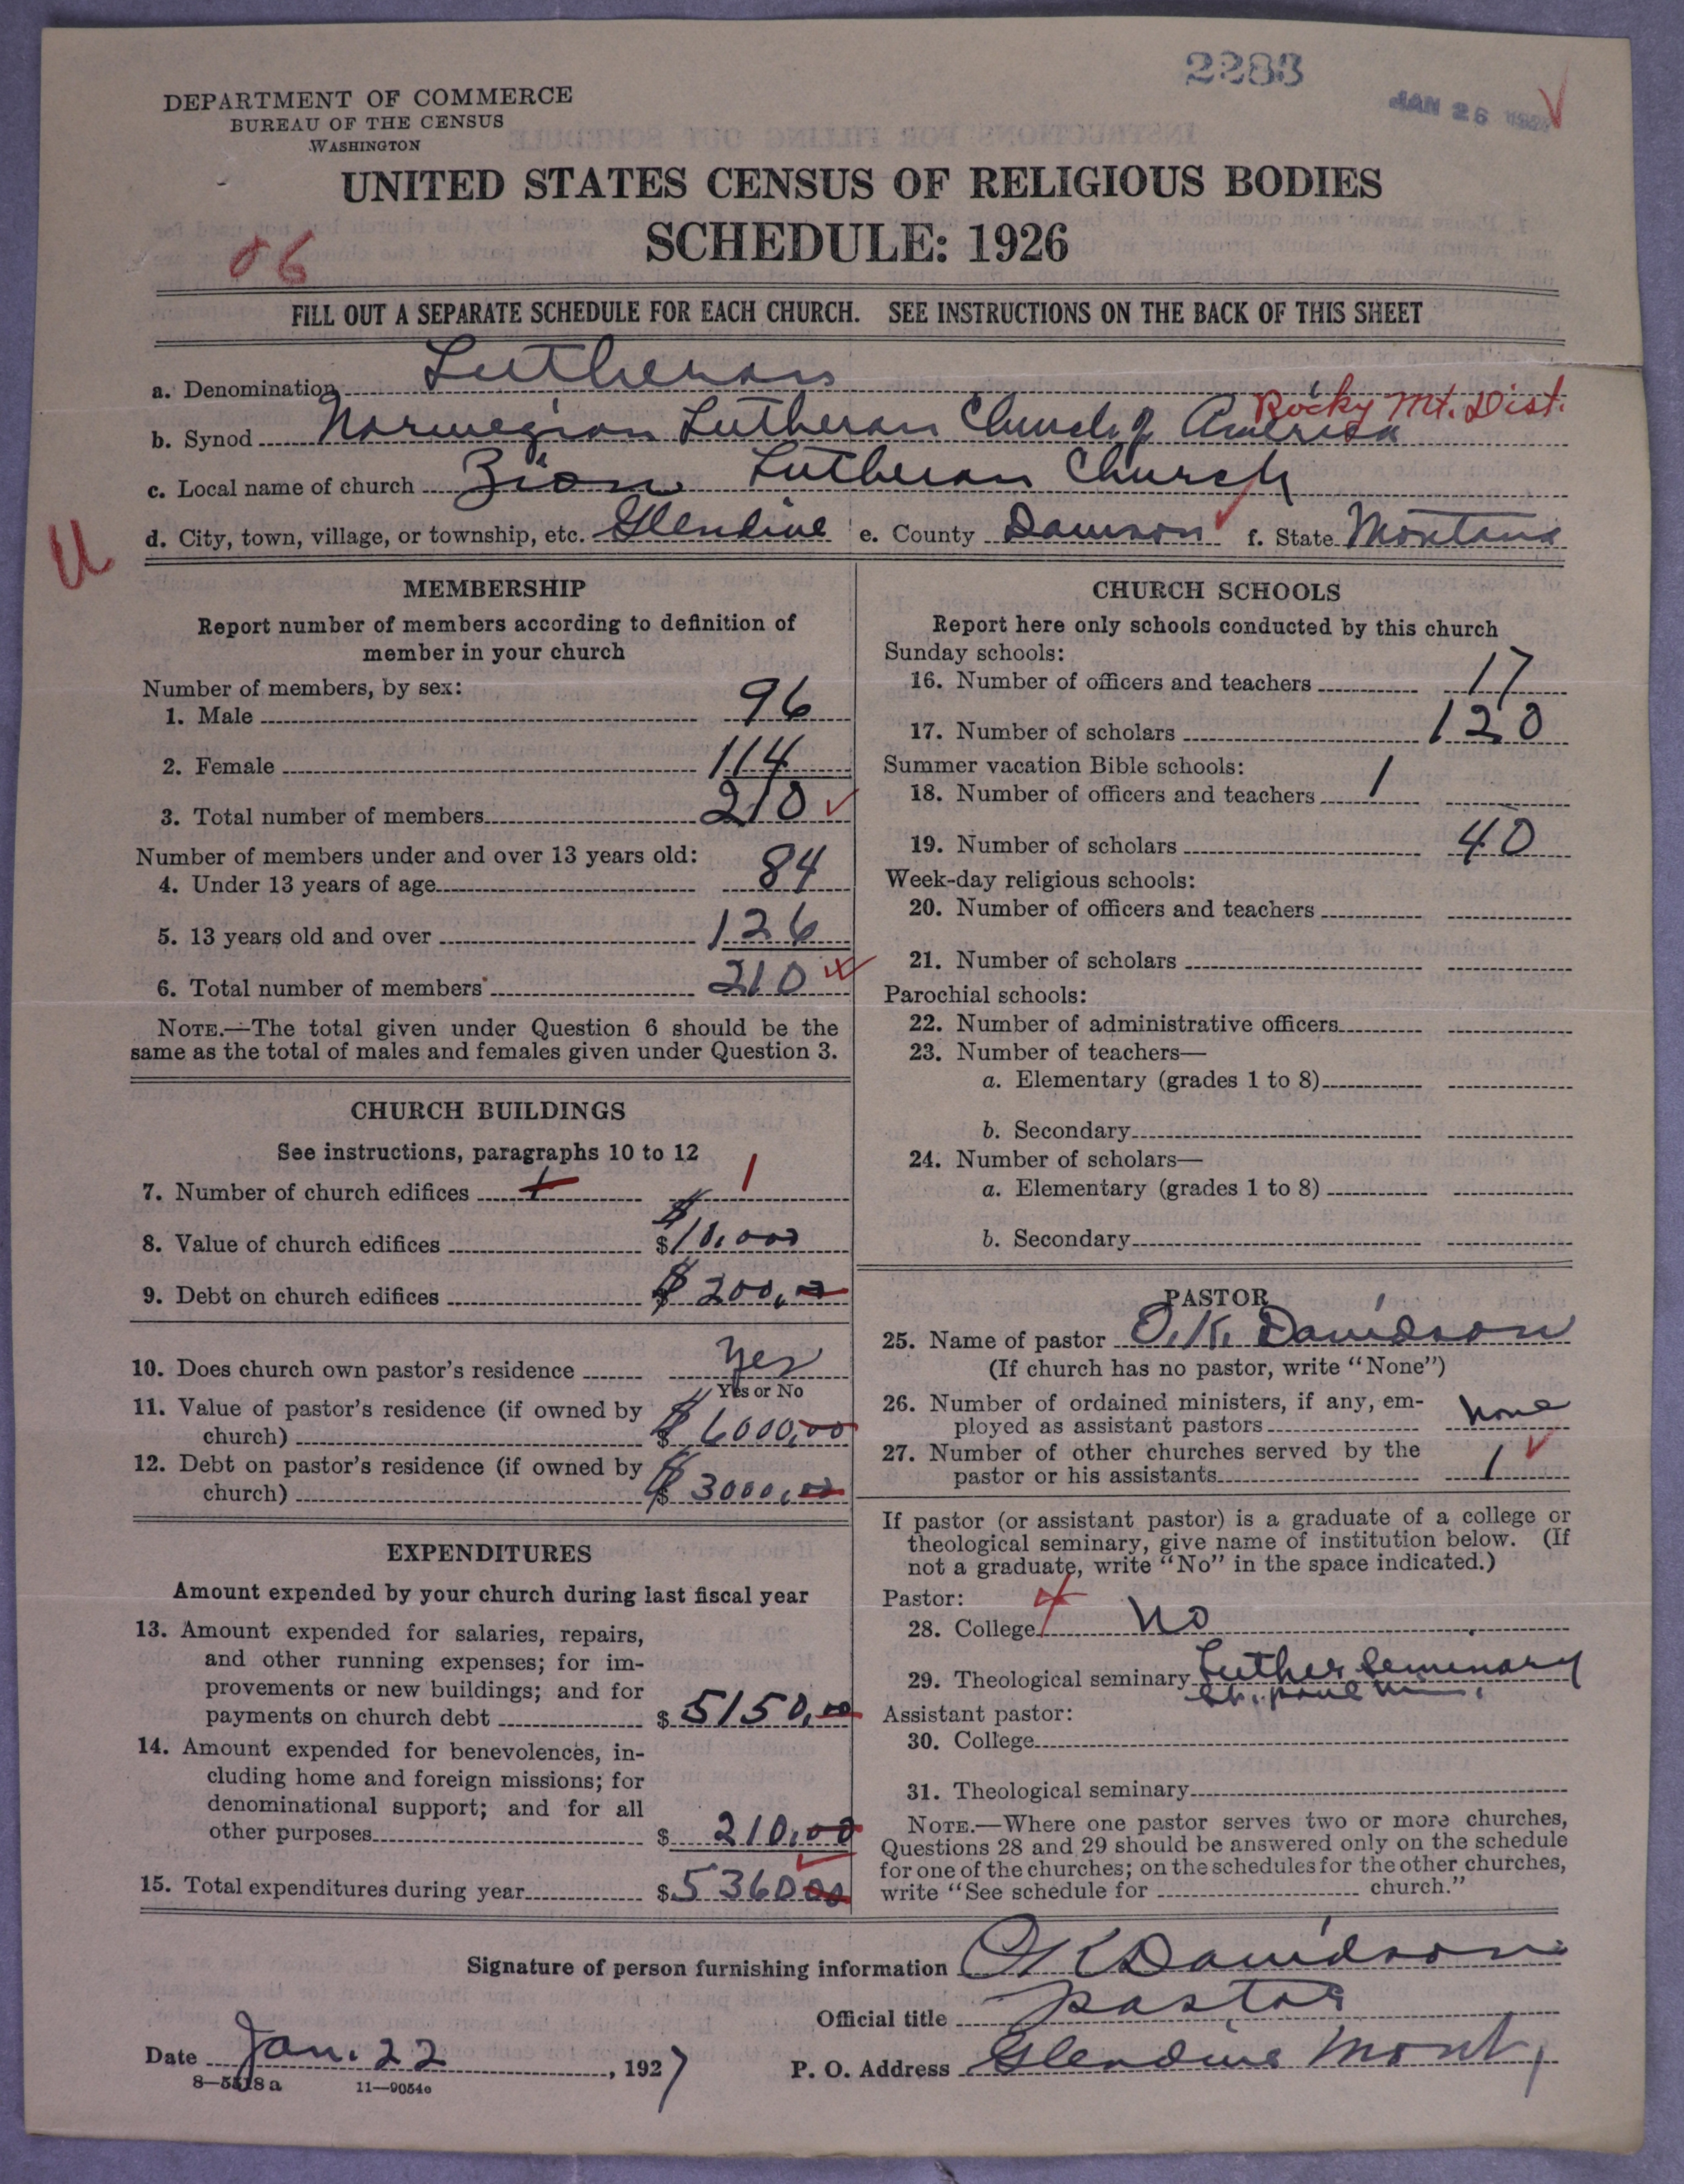 2283
JAN 26
DEPARTMENT OF COMMERCE
BUREAU OF THE CENSUS
WASHINGTON
UNITED STATES CENSUS OF RELIGIOUS BODIES
SCHEDULE: 1926
06
FILL OUT A SEPARATE SCHEDULE FOR EACH CHURCH. SEE INSTRUCTIONS ON THE BACK OF THIS SHEET
a. Denomination Lutheran
Rocky Mt. Dist.
b. Synod Norwegian Lutheran Church of America
c. Local name of church Zion Lutheran Church
U
d. City, town, village, or township, etc. Glendive e. County Dawson f. State Montana
MEMBERSHIP
Report number of members according to definition of
member in your church
Number of members, by sex:
1. Male 96
2. Female 114
3. Total number of members 210
Number of members under and over 13 years old:
4. Under 13 years of age 84
5. 13 years old and over 126
6. Total number of members 210
NOTE.—The total given under Question 6 should be the
same as the total of males and females given under Question 3.
CHURCH BUILDINGS
See instructions, paragraphs 10 to 12
7. Number of church edifices 1 1
8. Value of church edifices $ 10,000
9. Debt on church edifices $ 200,00
10. Does church own pastor's residence Yes
Yes or No
11. Value of pastor's residence (if owned by
church) $ 6000,00
12. Debt on pastor's residence (if owned by
church) $ 3000,00
EXPENDITURES
Amount expended by your church during last fiscal year
13. Amount expended for salaries, repairs,
and other running expenses; for im-
provements or new buildings; and for
payments on church debt $ 5150,00
14. Amount expended for benevolences, in-
cluding home and foreign missions; for
denominational support; and for all
other purposes $ 210,00
15. Total expenditures during year $ 5360 00
CHURCH SCHOOLS
Report here only schools conducted by this church
Sunday schools:
16. Number of officers and teachers 17
17. Number of scholars 120
Summer vacation Bible schools:
18. Number of officers and teachers 1
19. Number of scholars 40
Week-day religious schools:
20. Number of officers and teachers
21. Number of scholars
Parochial schools:
22. Number of administrative officers
23. Number of teachers—
a. Elementary (grades 1 to 8)
b. Secondary
24. Number of scholars—
a. Elementary (grades 1 to 8)
b. Secondary
PASTOR
25. Name of pastor O. K. Davidson
(If church has no pastor, write "None")
26. Number of ordained ministers, if any, em-
ployed as assistant pastors none
27. Number of other churches served by the
pastor or his assistants 1
If pastor (or assistant pastor) is a graduate of a college or
theological seminary, give name of institution below. (If
not a graduate, write "No" in the space indicated.)
Pastor:
28. College No
29. Theological seminary Luther Seminary
St. Paul
Assistant pastor:
30. College
31. Theological seminary
NOTE.—Where one pastor serves two or more churches,
Questions 28 and 29 should be answered only on the schedule
for one of the churches; on the schedules for the other churches,
write "See schedule for church."
Signature of person furnishing information OK Davidson
Official title pastor
Date Jan. 22, 1927 P. O. Address Glendive Mont,
8—5518 a 11—9054c